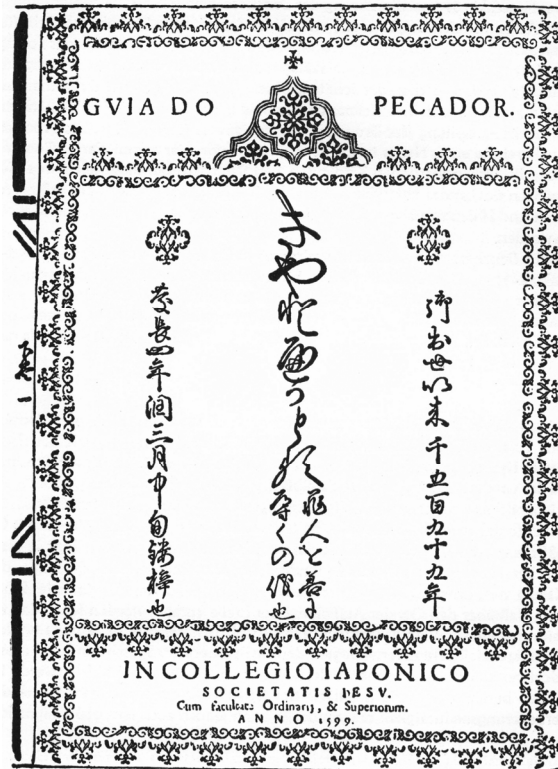 GVIA DO PECADOR.
御出世以来千五百九十九年
きやとへかとる
罪人を善に
導くの儀也
慶長四年閏三月中旬鏤梓也
IN COLLEGIO IAPONICO
SOCIETATIS IESV.
Cum facultate Ordinarij, & Superiorum.
ANNO 1599.